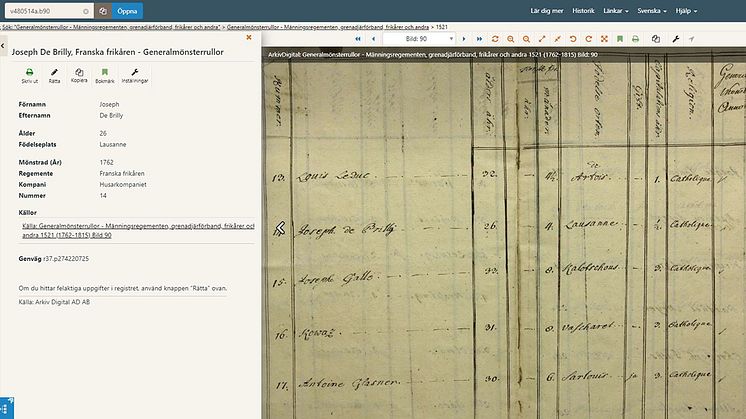 v480514a.b90
Öppna
Lär dig mer
Historik
Länkar
Svenska
Hjälp
Sök: "Generalmönsterrullor - Männingsregementen, grenadjärförband, frikårer och andra" > Generalmönsterrullor - Männingsregementen, grenadjärförband, frikårer och andra > 1521
Bild: 90
Joseph De Brilly, Franska frikåren - Generalmönsterrullor
Skriv ut
Rätta
Kopiera
Bokmärk
Inställningar
Förnamn Joseph
Efternamn De Brilly
Ålder 26
Födelseplats Lausanne
Mönstrad (År) 1762
Regemente Franska frikåren
Kompani Husarkompaniet
Nummer 14
Källor
Källa: Generalmönsterrullor - Männingsregementen, grenadjärförband, frikårer och
andra 1521 (1762-1815) Bild 90
Genväg r37.p274220725
Om du hittar felaktiga uppgifter i registret, använd knappen "Rätta" ovan.
Källa: Arkiv Digital AD AB
ArkivDigital: Generalmönsterrullor - Männingsregementen, grenadjärförband, frikårer och andra 1521 (1762-1815) Bild: 90
Nummer.
ålder åhr.
åhr.
månader
födelse orten.
Gift.
Religion.
13. Louis Leduc 32. 4½. Artois 1. Catholique
Joseph de Brilly 26. 4. Lausanne ½. Catholique
15. Joseph Galle 33. 8. 3. Catholique
16. Kowaz 31. 8. 3. Catholique
17. Antoine Glasner 30. 6. Sarlouis ja 3. Catholique